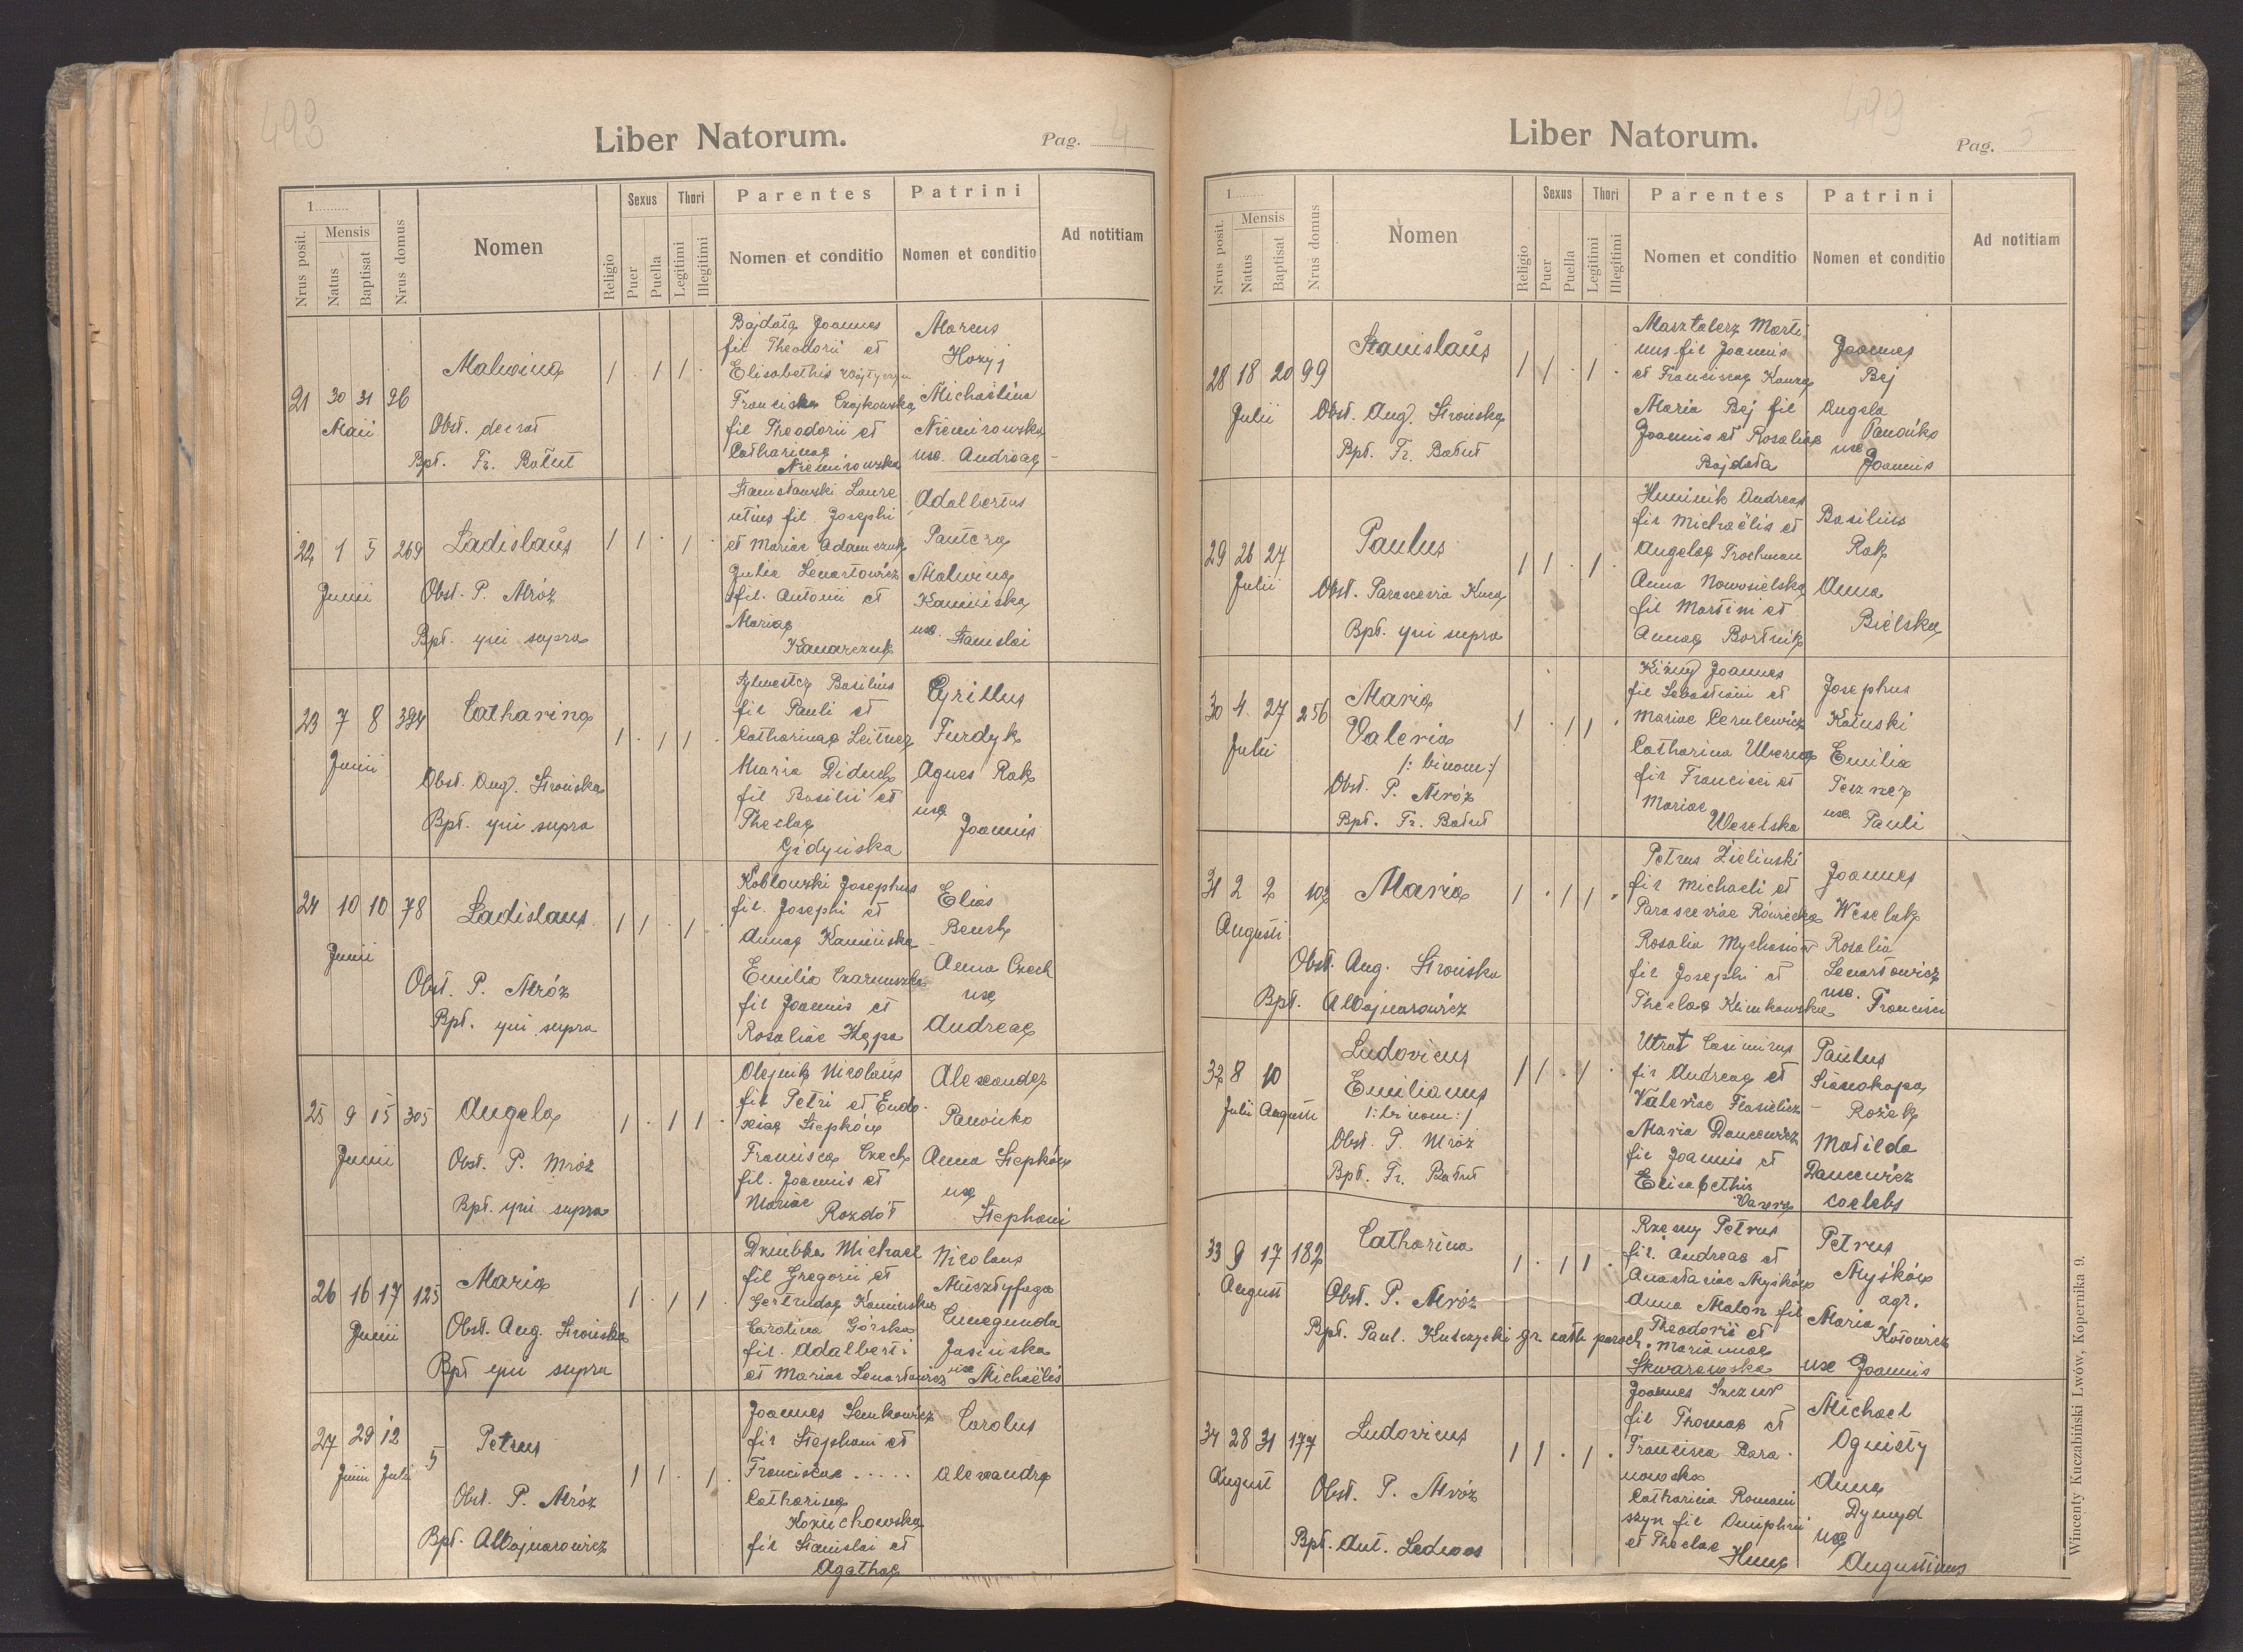 498
Liber Natorum.
Pag. 4
1
Nrus posit.
Mensis
Natus
Baptisat
Nrus domus
Nomen
Religio
Sexus
Puer
Puella
Thori
Legitimi
Illegitimi
Parentes
Nomen et conditio
Patrini
Nomen et conditio
Ad notitiam
21 30 31 96
Maii
Malwina
Obst. deerat
Bpt. Fr. Batut
1 · 1 1 ·
Bajdała Joannes
fil Theodorii et
Elisabethis
Francisca Czajkowska
fil Theodorii et
Catharinae
Niemirowska
Marcus
Michaelina
Niemirowska
uxe. Andreae
22 1 5 269
Junii
Ladislaus
Obst. P. Mróz
Bpt. qui supra
1 1 · 1 ·
Stanisławski Laure
ntius fil. Josephi
et Mariae Adamczuk
Julia Lenartowicz
fil. Antonii et
Mariae
Kanarczuk
Adalbertus
Pantera
Malwina
Kamińska
uxe. Stanislai
23 7 8 394
Junii
Catharina
Obst. Ang. Strońska
Bpt. qui supra
1 · 1 1 ·
Sylwester Basilius
fil Pauli et
Catharinae Leitner
Maria Diduch
fil Basilii et
Theclae
Gidyńska
Cyrillus
Furdyk
Agnes Rak
uxe
Joannis
24 10 10 78
Junii
Ladislaus
Obst. P. Mróz
Bpt. qui supra
1 1 · 1 ·
Kobłowski Josephus
fil. Josephi et
Annae Kamińska
Emilia
fil Joannis et
Rosaliae Kępa
Elias
Bench
Anna Czech
uxe
Andreae
25 9 15 305
Junii
Angela
Obst. P. Mróz
Bpt. qui supra
1 · 1 1 ·
Olejnik Nicolaus
fil Petri et Eudo-
xiae Stepków
Francisca Czech
fil. Joannis et
Mariae
Rozdół
Alexander
Panońko
Anna Stepków
uxe
Stephani
26 16 17 125
Junii
Maria
Obst. Ang. Strońska
Bpt qui supra
1 · 1 1 ·
Dziubka Michael
fil Gregorii et
Gertrudae Kamińska
Carolina Górska
fil. Adalberti
et Mariae Lenartowicz
Nicolaus
Cunegunda
Jasińska
uxe Michaëlis
27 29 12 5
Junii Julii
Petrus
Obst. P. Mróz
Bpt. A Wojnarowicz
1 1 · 1 ·
Joannes Senkowicz
fil Stephani et
Franciscae .....
Catharina
Kozuchowska
fil Stanislai et
Agathae
Carolus
Alexandra
499
Liber Natorum.
Pag. 5
1
Nrus posit.
Mensis
Natus
Baptisat
Nrus domus
Nomen
Religio
Sexus
Puer
Puella
Thori
Legitimi
Illegitimi
Parentes
Nomen et conditio
Patrini
Nomen et conditio
Ad notitiam
28 18 20 99
Julii
Stanislaus
Obst. Ang. Strońska
Bpt. Fr. Batut
1 1 · 1 ·
Marztalerz Marti
nus fil Joannis
et Franciscae
Maria Bej fil
Joannis et Rosaliae
Bajdała
Joannes
Bej
Angela
Panońko
uxe
Joannis
29 26 27
Julii
Paulus
Obst. Parascevia
Bpt. qui supra
1 1 · 1 ·
Huminik Andreas
fil Michaëlis et
Angelae Trochman
Anna Nowosielska
fil Martini et
Annae Bortnik
Basilius
Rak
Anna
Bielska
30 4 27 256
Julii
Maria
Valeria
/: binom :/
Obst. P. Mróz
Bpt. Fr. Batut
1 · 1 1 ·
Joannes
fil Sebastiani et
Mariae Cerulewicz
Catharina
fil Francisci et
Mariae
Weselska
Josephus
Kałuski
Emilia
Teszner
uxe. Pauli
31 2 2 102
Augusti
Maria
Obst. Ang. Strońska
Bpt. A Wojnarowicz
1 · 1 1 ·
Petrus Zielinski
fil Michaeli et
Parasceviae
Rosalia Mychasiów
fil Josephi et
Theclae Klimkowska
Joannes
Weselak
Rosalia
Lenartowicz
uxe. Francisci
32 8 10
Julii Augusti
Ludovicus
Emilianus
/: binom :/
Obst. P. Mróz
Bpt. Fr. Batut
1 1 · 1 ·
Utrat Casimirus
fil Andreae et
Valeriae
Maria Dancewicz
fil Joannis et
Elisabethis
Paulus
Sianokapa
Rożek
Matilda
Dancewicz
coelebs
33 9 17 182
August
Catharina
Obst. P. Mróz
Bpt. Paul. Kulczycki gr. cath paroch.
1 · 1 1 ·
Rzesny Petrus
fil. Andreae et
Anastasiae Myśków
Anna Maton fil
Theodorii et
Mariannae
Skwarowska
Petrus
Myśków
agr.
Maria
Kotowicz
uxe Joannis
34 28 31 177
August
Ludovicus
Obst. P. Mróz
Bpt. Ant. Ledwos
1 1 · 1 ·
Joannes Szczur
fil Thomae et
Francisca Bara-
nowska
Catharina Romani
szyn fil Onuphrii
et Theclae
Michael
Ognisty
Anna
Dymyd
uxe
Augustinus
Wincenty Kuczabiński Lwów, Kopernika 9.